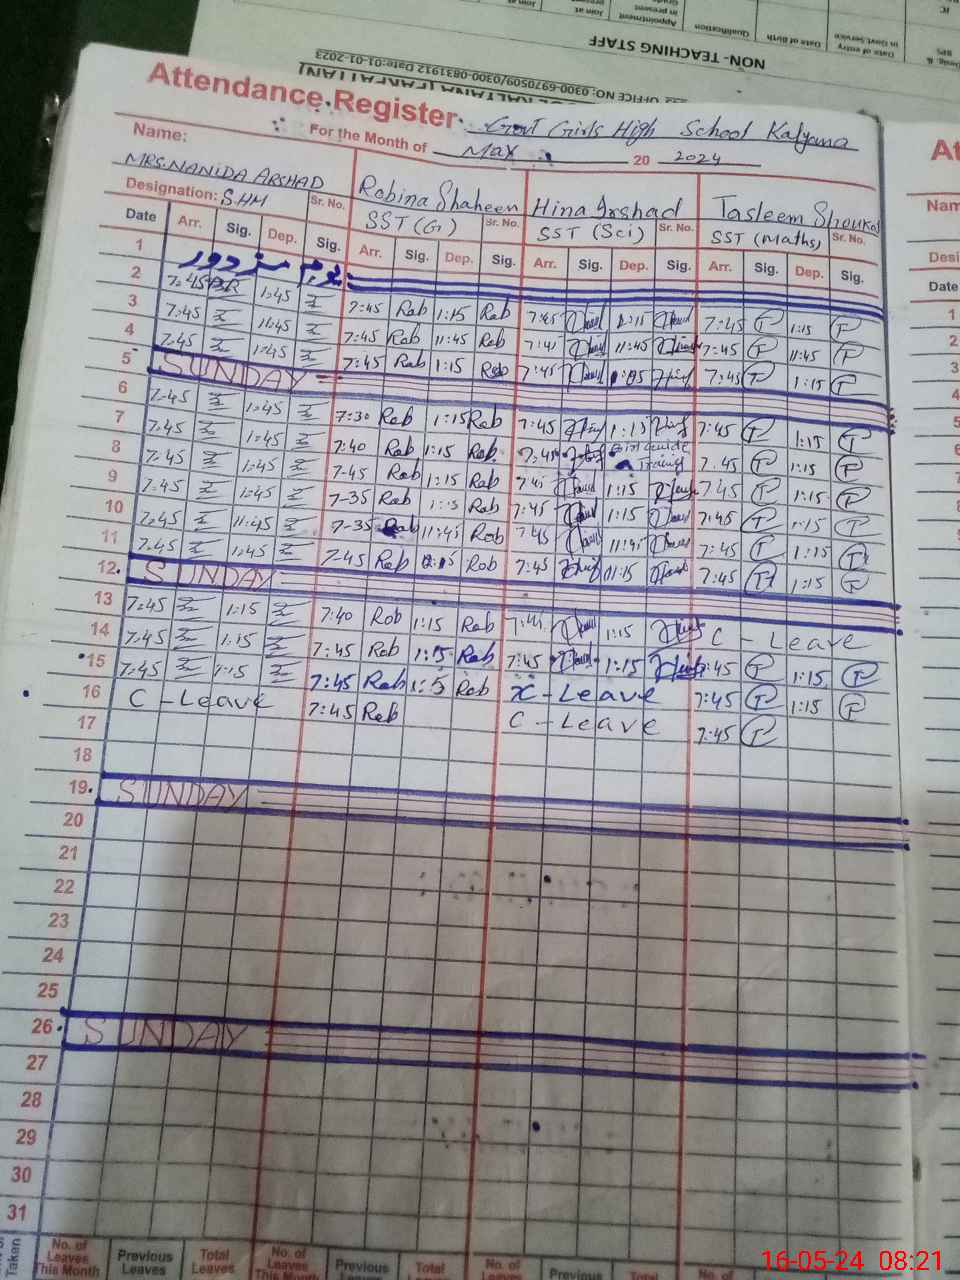 NON- TEACHING STAFF
OFFICE NO: 0300-6970509/0300-0831912 Date: 01-01-2023
Attendance Register Govt Girls High School Kalyana
For the Month of May 20 2024
Name:
MRS. NAHIDA ARSHAD Robina Shaheen Hina Irshad Tasleem Shoukat
Designation: S.HM Sr. No. SST (G) Sr. No. SST (Sci) Sr. No. SST (Maths) Sr. No.
Date Arr. Sig. Dep. Sig. Arr. Sig. Dep. Sig. Arr. Sig. Dep. Sig. Arr. Sig. Dep. Sig.
1 یوم مزدور
2 7:45 1:45 7:45 Rab 1:15 Rab 7:45 1:15 7:45 T 1:15 T
3 7:45 11:45 7:45 Rab 11:45 Rab 7:45 11:45 7:45 T 11:45 T
4 7:45 1:45 7:45 Rab 1:15 Rab 7:45 7:45 T 1:15 T
5 SUNDAY
6 7:45 1:45 7:30 Rab 1:15 Rab 7:45 1:15 7:45 T 1:15 T
7 7:45 1:45 7:40 Rab 1:15 Rab 7:45 Girl Guide Training 7:45 T 1:15 T
8 7:45 1:45 7-45 Rab 1:15 Rab 7:45 1:15 7:45 T 1:15 T
9 7:45 1:45 7-35 Rab 1:15 Rab 7:45 1:15 7:45 T 1:15 T
10 7:45 11:45 7-35 Rab 11:45 Rab 7:45 11:45 7:45 T 1:15 T
11 7:45 1:45 7-45 Rab Rab 7:45 11:15 7:45 T 1:15 T
12 SUNDAY
13 7:45 1:15 7:40 Rab 1:15 Rab 7:45 1:15 C - Leave
14 7:45 1:15 7:45 Rab 1:15 Rab 7:45 1:15 7:45 T 1:15 T
15 7:45 1:15 7:45 Rab 1:15 Rab C - Leave 7:45 T 1:15 T
16 C - Leave 7:45 Rab C - Leave 7:45 T
17
18
19 SUNDAY
20
21
22
23
24
25
26 SUNDAY
27
28
29
30
31
Taken No. of Leaves This Month Previous Leaves Total Leaves No. of Leaves This Month Previous Leaves Total Leaves No. of Leaves Previous Total No. of
16-05-24 08:21